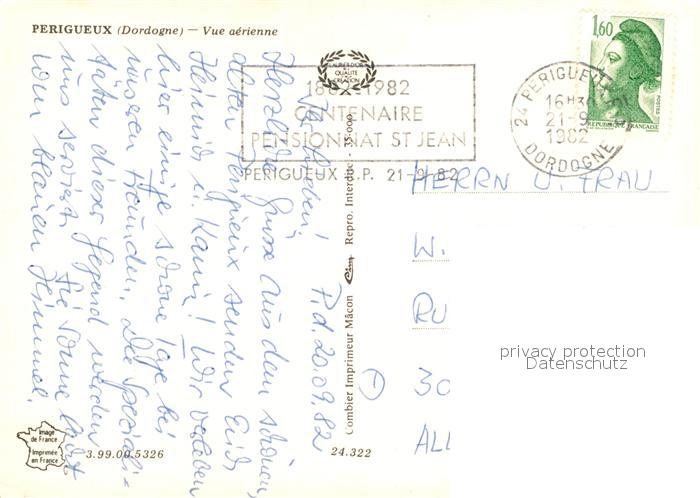 PERIGUEUX (Dordogne) — Vue aérienne
LAURIER D'OR
QUALITE
CREATION
1882-1982
CENTENAIRE
PENSIONNAT ST JEAN
PERIGUEUX R.P. 21-9-82
24 PERIGUEUX
16H30
21-9
1982
DORDOGNE
1,60
REPUBLIQUE FRANÇAISE
P.d. 20.09.82
Ihr Lieben!
Herzliche Grüsse aus dem schönen,
alten Perigieux senden Euch
Heinrich u. Kam! Wir verleben
hier einige schöne Tage bei
unseren Freunden. Die Speziali-
täten dieser Gegend werden
uns serviert. Die Sonne lacht
vom blauen Himmel.
Combier Imprimeur Mâcon Cim Repro. Interdite - 35.000
HERRN U. FRAU
W.
RU
30
ALL
privacy protection
Datenschutz
Image
de France
Imprimée
en France
3.99.00.5326
24.322